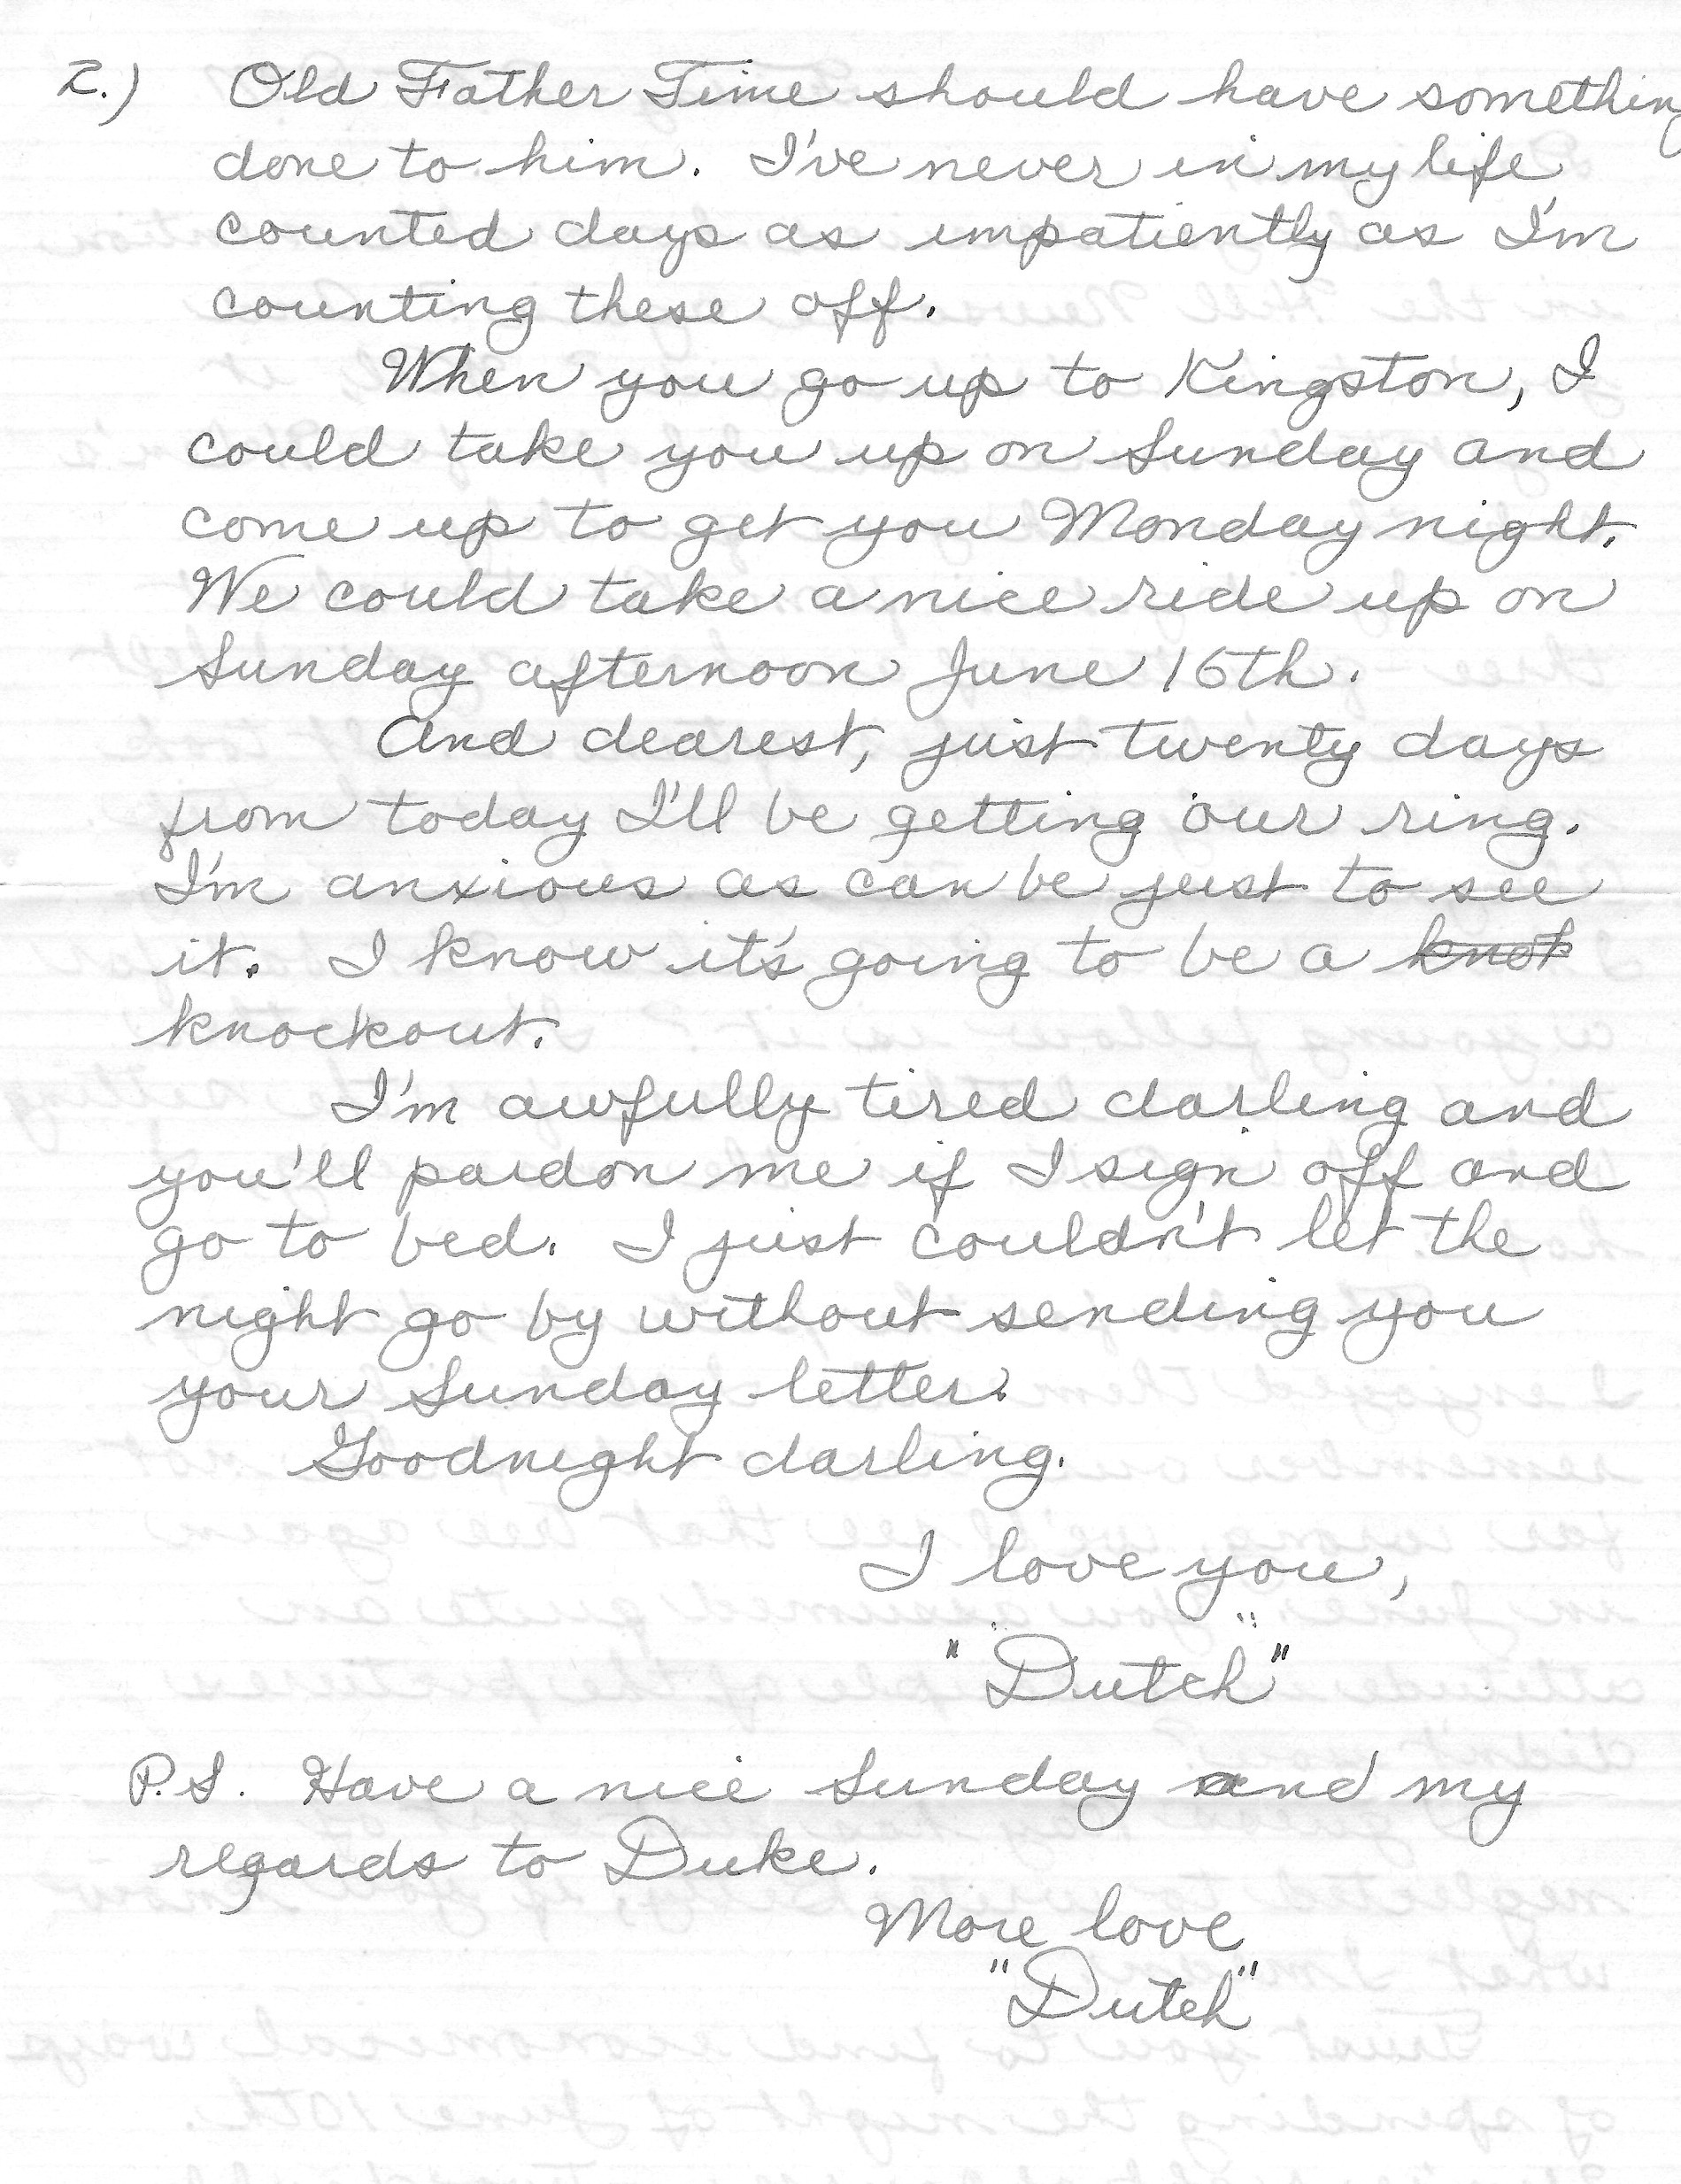 2.) Old Father Time should have something
done to him. I've never in my life
counted days as impatiently as I'm
counting these off.
When you go up to Kingston, I
could take you up on Sunday and
come up to get you Monday night.
We could take a nice ride up on
Sunday afternoon June 16th.
And dearest, just twenty days
from today I'll be getting our ring.
I'm anxious as can be just to see
it. I know it's going to be a knot
knockout.
I'm awfully tired darling and
you'll pardon me if I sign off and
go to bed. I just couldn't let the
night go by without sending you
your Sunday letter.
Goodnight darling.
I love you,
"Dutch"
P.S. Have a nice Sunday and my
regards to Duke.
More love
"Dutch"